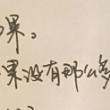 果。
果没有那么多